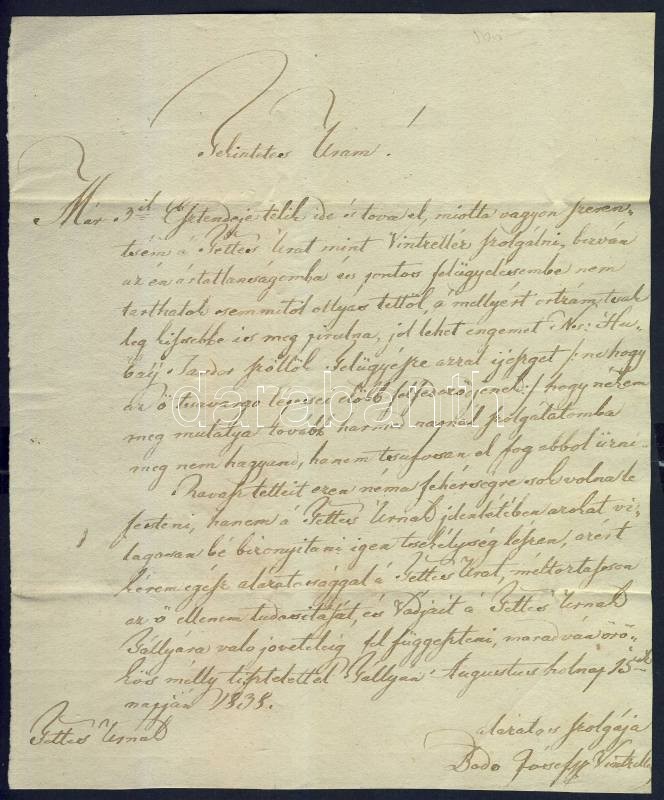 Tekintetes Uram!
Már 3ik Esztendeje telik ide s tova el, miolta vagyon szeren-
tsém a Tettes Urat mint Vintzellér szolgálni, bizván
az én ártatlanságomba és pontos felügyelésembe nem
tarthatok semmitöl ollyas tettöl, a mellyért ortzám tsak
leg kissebbé is meg pirulna, jol lehet engemet Nes: Hu-
Sandor felügyésre azzal / ne hogy
az ö tsavargo lépései elöbb felfedezödjenek / hogy nékem
meg mutatya tovább három napnál szolgálatomba
meg nem hagyand, hanem tsufossan el fog abbol üzni.
Ravasz tetteit ezen néma fehérségre sok volna le
festeni, hanem a Tettes Urnak jelenlétében azokat vi-
lágosan bé bizonyitani igen tsekélység lészen, azért
kérem egész alázatossággal a Tettes Urat, méltoztasson
az ö ellenem tudositását, és Vádjait a Tettes Urnak
Gállyára valo joveteleig fel függeszteni, maradván örö-
kös mélly tisztelettel Gállyán Augustus holnap 15ik
napján 1838.
Tettes Urnak
alázatos szolgája
Bodo Jósef Vintzellér
darabanth